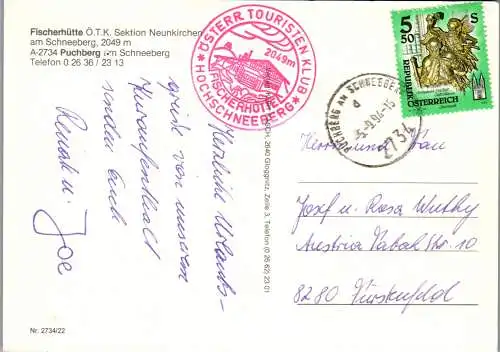 Fischerhütte Ö.T.K. Sektion Neunkirchen
am Schneeberg, 2049 m
A-2734 Puchberg im Schneeberg
Telefon 0 26 36 / 23 13
ÖSTERR. TOURISTEN KLUB
2049m
FISCHERHÜTTE
★ HOCHSCHNEEBERG ★
PUCHBERG AM SCHNEEBERG
d
-5.-9.94-15
2734
5 50
S
REPUBLIK
ÖSTERREICH
Herzliche Urlaubs-
grüße von unserem
Kuraufenthalt
senden Euch
Renate u.
Joe
2640 Gloggnitz, Zeile 3, Telefon (0 26 62) 23 01
Herrn und Frau
Josef u. Rosa Wuthy
Austria Tabak Str. 10
8280 Fürstenfeld
Nr. 2734/22